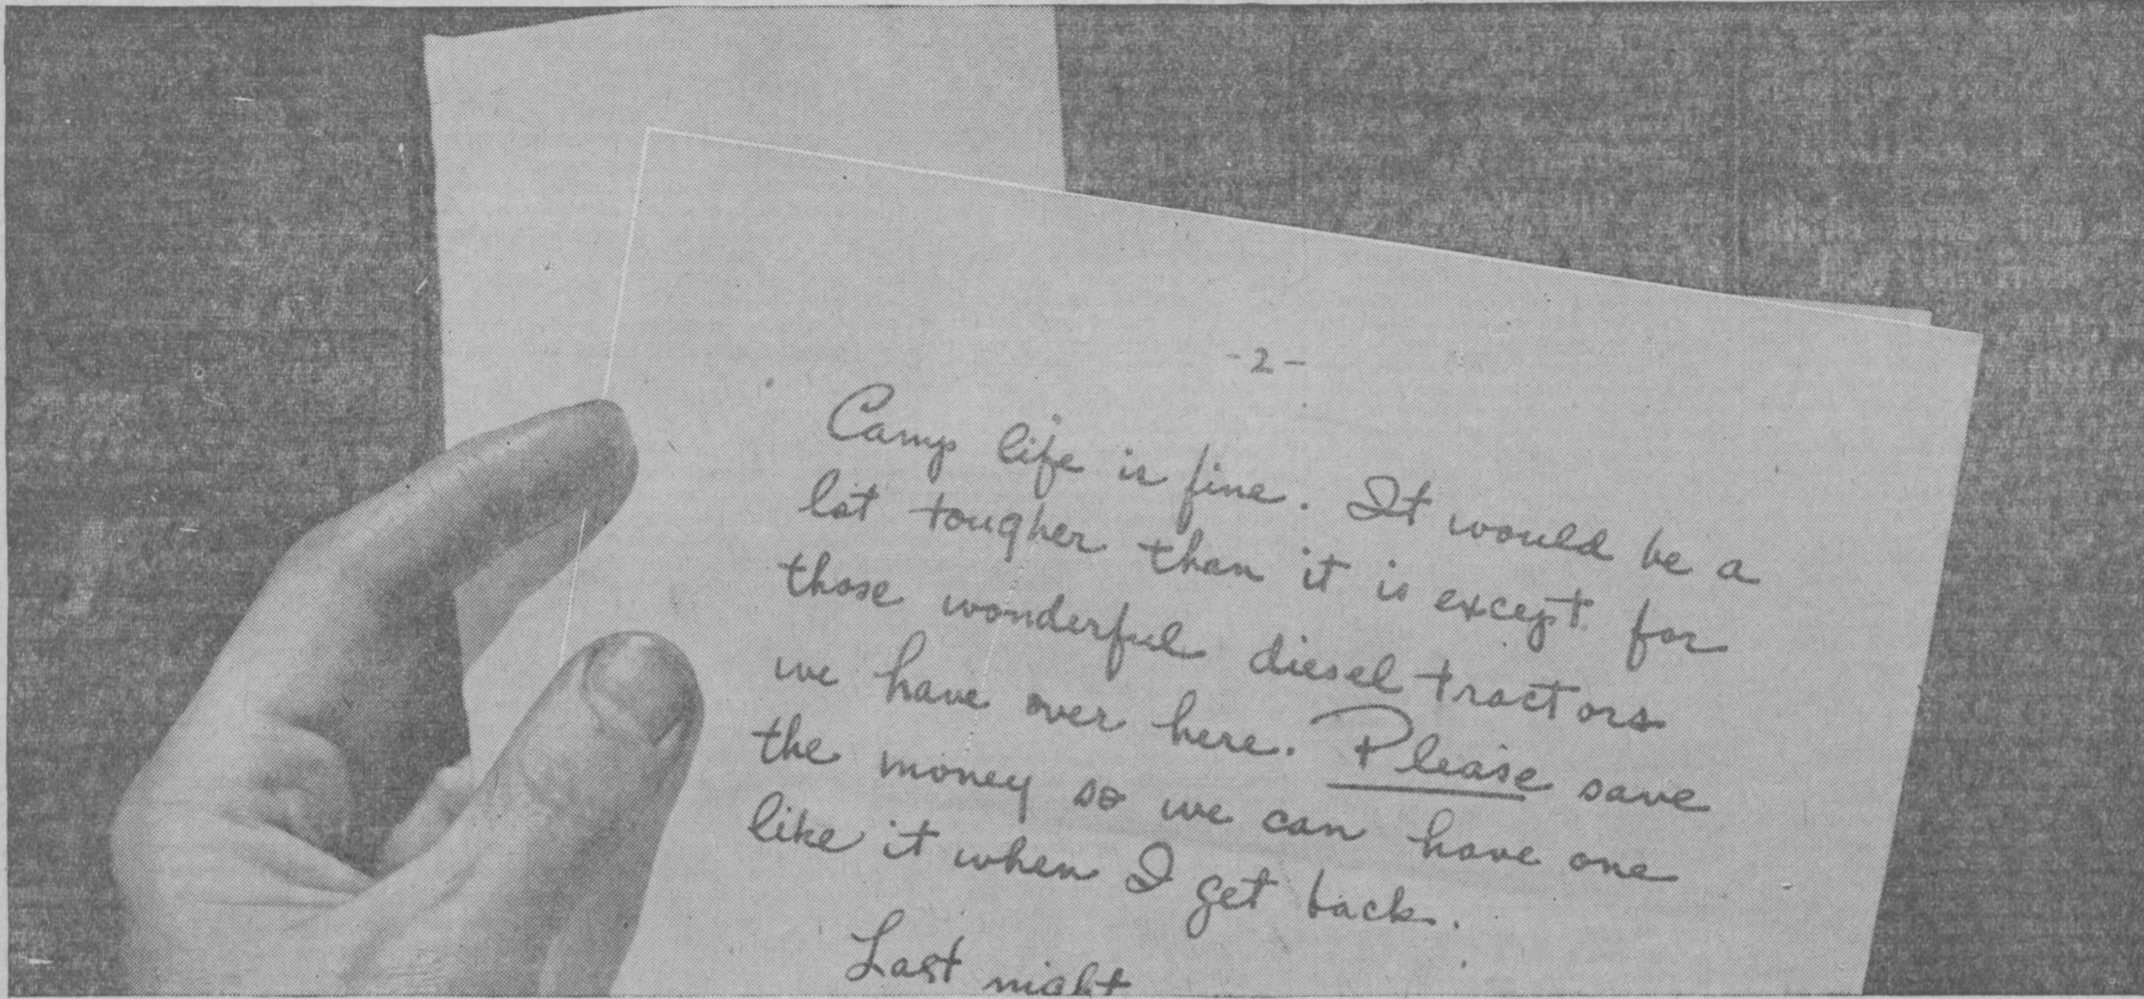 -2-
Camp life is fine. It would be a
lot tougher than it is except for
those wonderful diesel tractors
we have over here. Please save
the money so we can have one
like it when I get back.
Last night